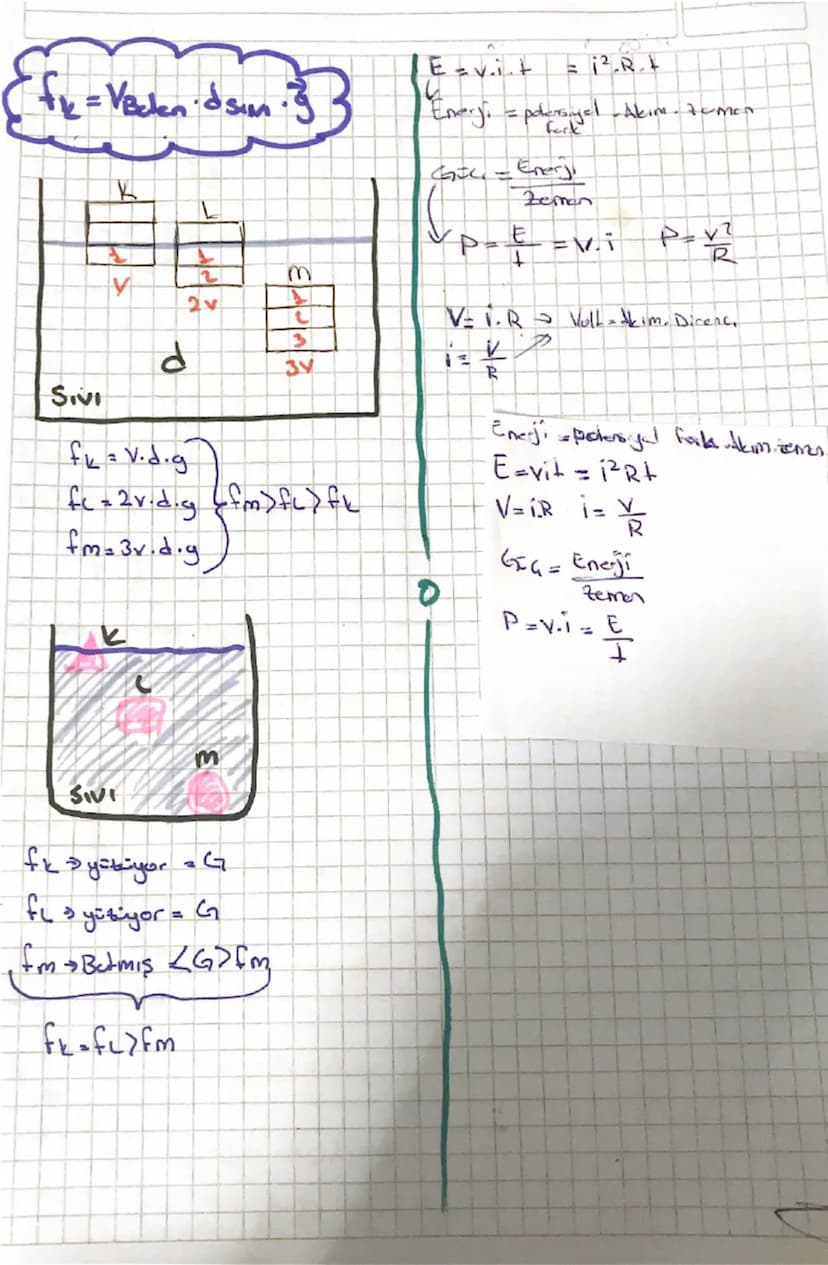 fk = VBatan · dsıvı · g
K
L
1
1
m
2
1
V
2V
2
3
d
3V
Sıvı
fk = V.d.g
fL = 2V.d.g
fm = 3V.d.g
fm > fL > fk
K
L
m
Sıvı
fk → yüzüyor = G
fL → yüzüyor = G
fm → Batmış < G > fm
fk = fL > fm
E = V.i.t = i².R.t
Enerji = potansiyel fark . Akım . Zaman
Güç = Enerji / Zaman
P = E / t = V.i P = V² / R
V = i.R → Volt = Akım . Direnç
i = V / R
Enerji = potansiyel fark . Akım . zaman
E = Vit = i²Rt
V = i.R i = V / R
Güç = Enerji / Zaman
P = V.i = E / t